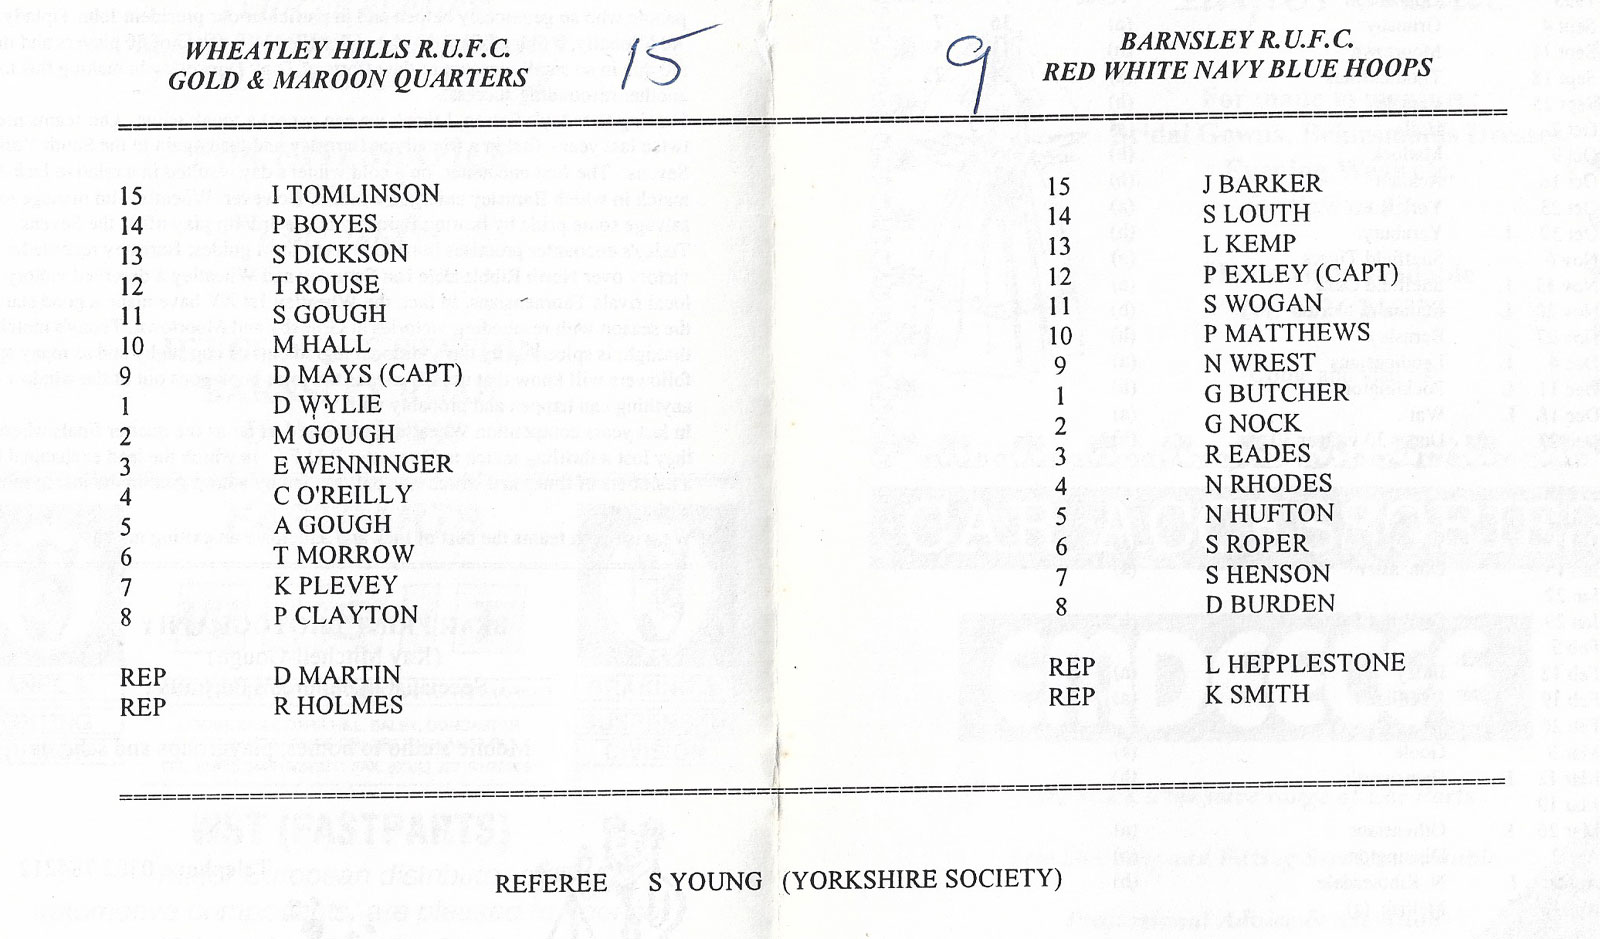 WHEATLEY HILLS R.U.F.C.
GOLD & MAROON QUARTERS
15
9
BARNSLEY R.U.F.C.
RED WHITE NAVY BLUE HOOPS
15 I TOMLINSON
14 P BOYES
13 S DICKSON
12 T ROUSE
11 S GOUGH
10 M HALL
9 D MAYS (CAPT)
1 D WYLIE
2 M GOUGH
3 E WENNINGER
4 C O'REILLY
5 A GOUGH
6 T MORROW
7 K PLEVEY
8 P CLAYTON
REP D MARTIN
REP R HOLMES
15 J BARKER
14 S LOUTH
13 L KEMP
12 P EXLEY (CAPT)
11 S WOGAN
10 P MATTHEWS
9 N WREST
1 G BUTCHER
2 G NOCK
3 R EADES
4 N RHODES
5 N HUFTON
6 S ROPER
7 S HENSON
8 D BURDEN
REP L HEPPLESTONE
REP K SMITH
REFEREE S YOUNG (YORKSHIRE SOCIETY)